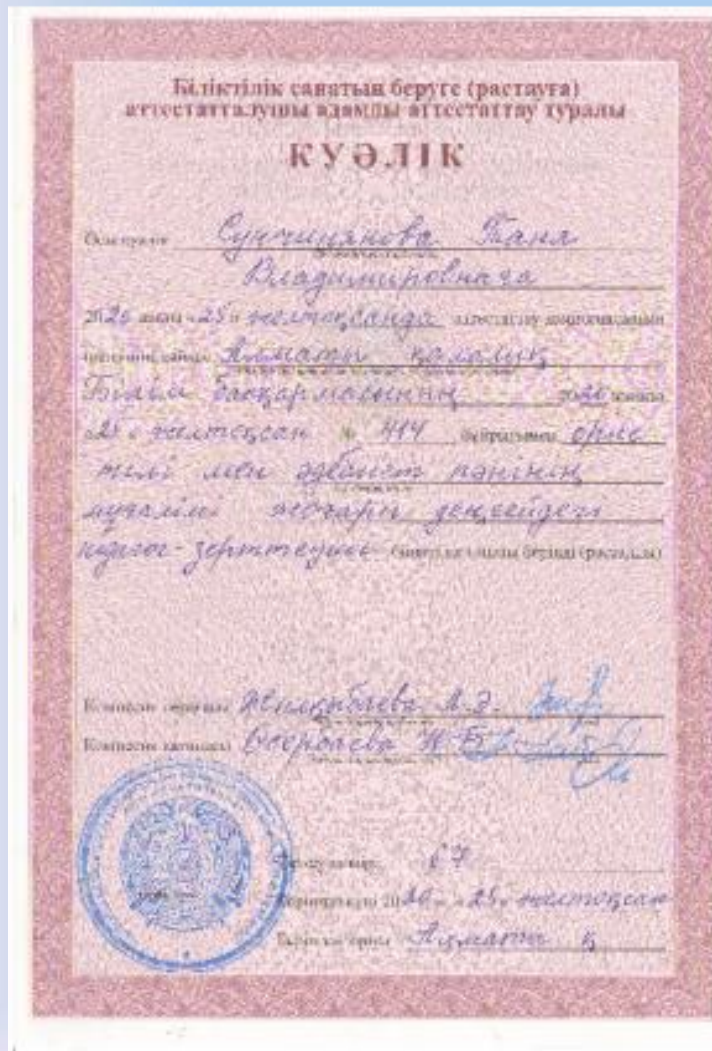 Біліктілік санатын беруге (растауға)
аттестатталушы адамды аттестаттау туралы
КУӘЛІК
Осы куәлік Таня
Владимировнаға
2020 жылғы «25» желтоқсанда аттестаттау комиссиясының
Алматы қалалық
Білім басқармасының 2020 жылғы
«25» желтоқсан № 414 бұйрығымен орыс
тілі мен әдебиет пәнінің
мұғалімі жоғары деңгейдегі
педагог-зерттеуші берілді (расталды)
Комиссия төрағасы А.Ә.
Комиссия хатшысы
67
Берілген күні 2020 ж. «25» желтоқсан
Берілген орны Алматы қ